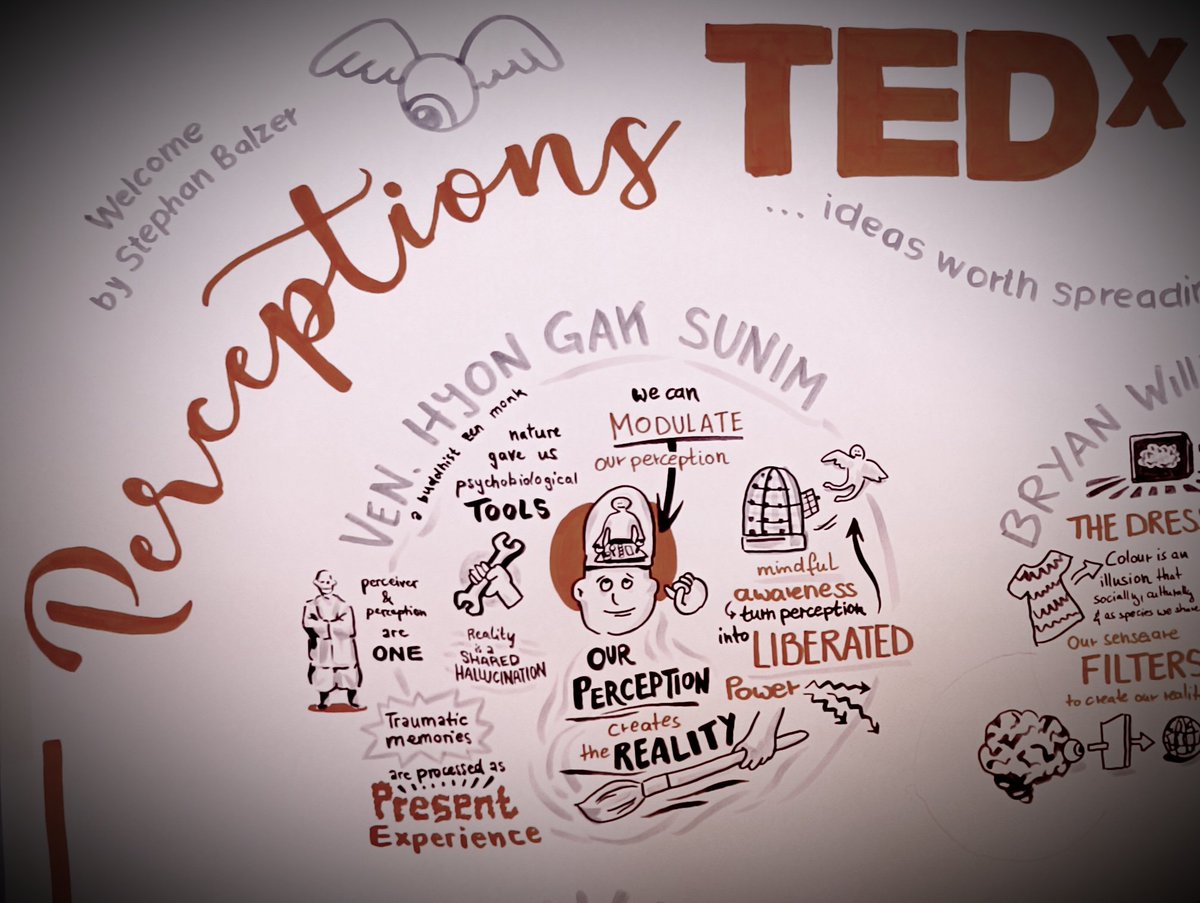 Welcome
by Stephan Balzer
Perceptions
TEDx
... ideas worth spreadin
VEN. HYON GAK SUNIM
a buddhist zen monk
nature
gave us
psychobiological
TOOLS
we can
MODULATE
our perception
perceiver
&
perception
are
ONE
Reality
is a
SHARED
HALLUCINATION
mindful
awareness
turn perception
into LIBERATED
Power
OUR
PERCEPTION
creates
the REALITY
Traumatic
memories
are processed as
Present
Experience
BRYAN Will
THE DRES
Colour is an
illusion that
socially, culturally
& as species we share
Our senseare
FILTERS
to create our realit